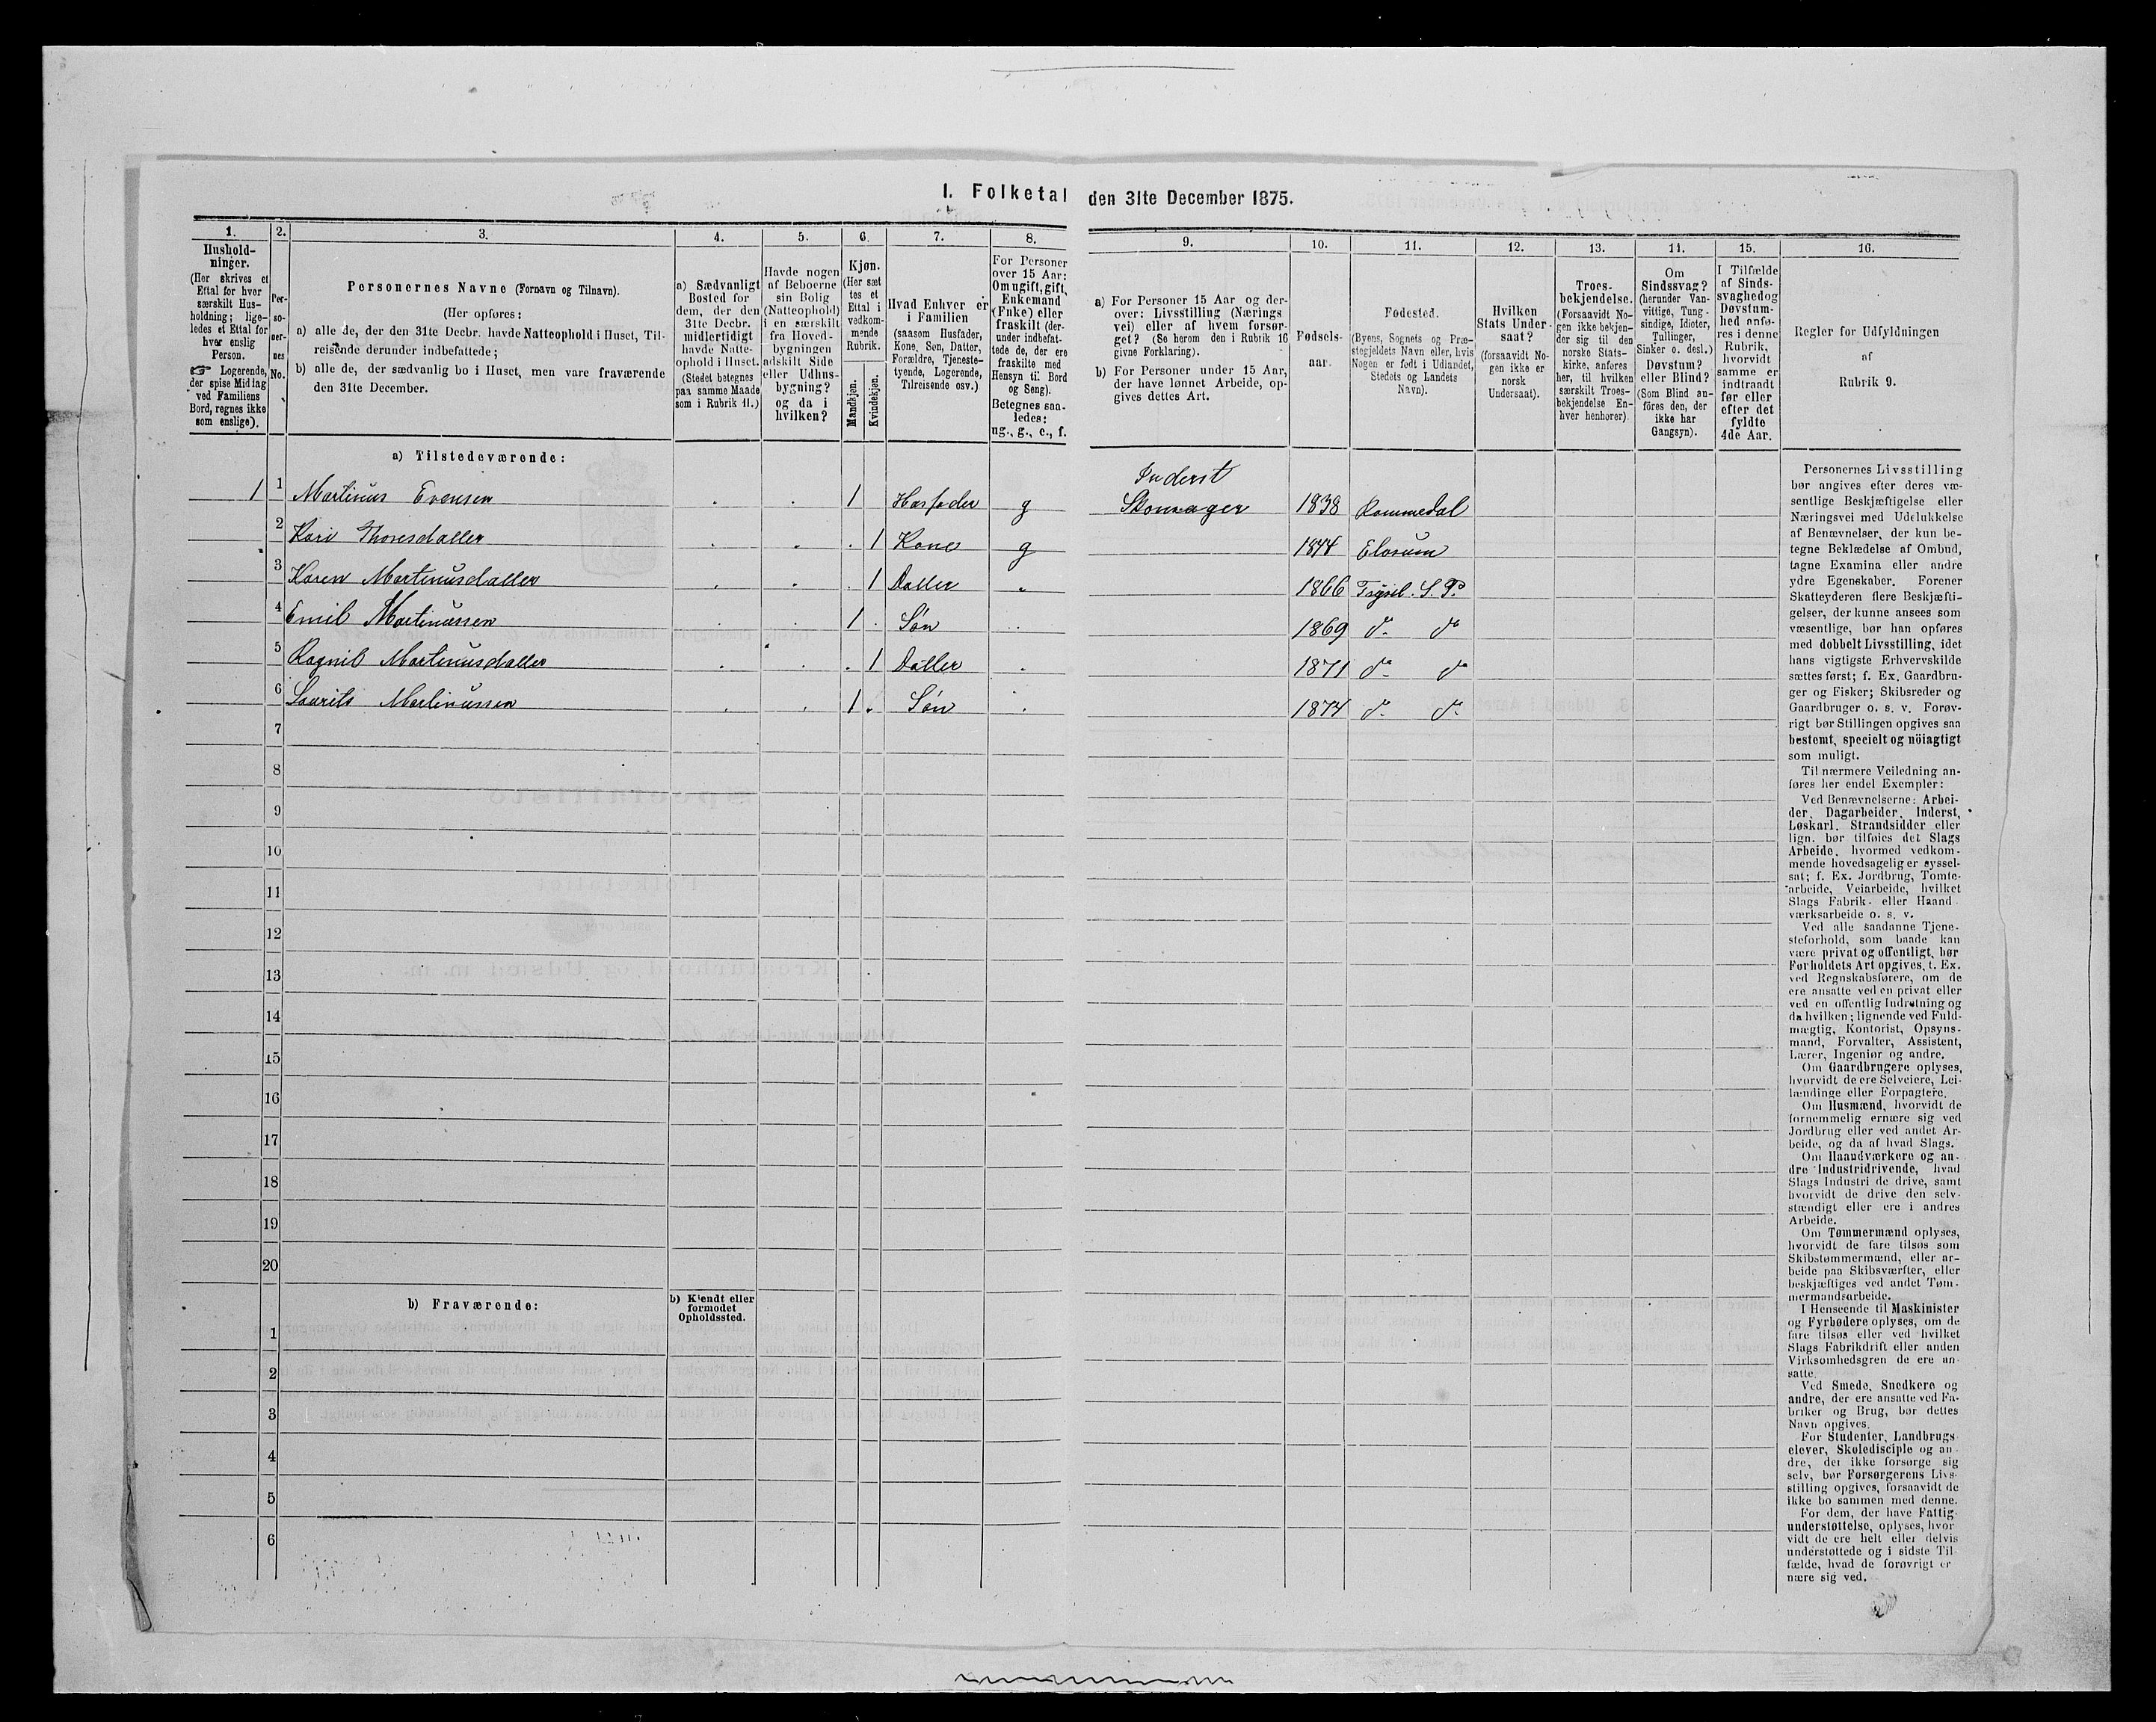 I. Folketal den 31te December 1875.
1.
Hushold-
ninger.
(Her skrives et
Ettal for hver
særskilt Hus-
holdning; lige-
ledes et Ettal for
hver enslig
Person.
☞ Logerende,
der spise Middag
ved Familiens
Bord, regnes ikke
som enslige).
2.
Per-
so-
ner-
nes
No.
3.
Personernes Navne (Fornavn og Tilnavn).
(Her opføres:
a) alle de, der den 31te Decbr. havde Natteophold i Huset, Til-
reisende derunder indbefattede;
b) alle de, der sædvanlig bo i Huset, men vare fraværende
den 31te December.
4.
a) Sædvanligt
Bosted for
dem, der den
31te Decbr.
midlertidigt
havde Natte-
ophold i Huset.
(Stedet betegnes
paa samme Maade
som i Rubrik 11.)
5.
Havde nogen
af Beboerne
sin Bolig
(Natteophold)
i en særskilt
fra Hoved-
bygningen
adskilt Side-
eller Udhus-
bygning?
og da i
hvilken?
6.
Kjøn.
(Her sæt
tes et
Ettal i
vedkom-
mende
Rubrik.
Mandkjøn.
Kvindekjøn.
7.
Hvad Enhver er
i Familien
(saasom Husfader,
Kone, Søn, Datter,
Forældre, Tjeneste-
tyende, Logerende,
Tilreisende osv.)
8.
For Personer
over 15 Aar:
Om ugift, gift,
Enkemand
(Enke) eller
fraskilt (der-
under indbefat-
tede de, der ere
fraskilte med
Hensyn til Bord
og Seng).
Betegnes saa-
ledes:
ug., g., e., f.
9.
a) For Personer 15 Aar og der-
over: Livsstilling (Nærings
vei) eller af hvem forsør-
get? (Se herom den i Rubrik 16
givne Forklaring).
b) For Personer under 15 Aar,
der have lønnet Arbeide, op-
gives dettes Art.
10.
Fødsels-
aar.
11.
Fødested.
(Byens, Sognets og Præ-
stegjeldets Navn eller, hvis
Nogen er født i Udlandet,
Stedets og Landets
Navn).
12.
Hvilken
Stats Under-
saat?
(forsaavidt No-
gen ikke er
norsk
Undersaat).
13.
Troes-
bekjendelse.
(Forsaavidt No-
gen ikke bekjen-
der sig til den
norske Stats-
kirke, anføres
her, til hvilken
særskilt Troes-
bekjendelse En-
hver henhører).
14.
Om
Sindssvag?
(herunder Van-
vittige, Tung-
sindige, Idioter,
Tullinger,
Sinker o. desl.)
Døvstum?
eller Blind?
(Som Blind an-
føres den, der
ikke har
Gangsyn).
15.
I Tilfælde
af Sinds-
svaghed og
Døvstum-
hed anfø-
res i denne
Rubrik,
hvorvidt
samme er
indtraadt
før eller
efter det
fyldte
4de Aar.
16.
Regler for Udfyldningen
af
Rubrik 9.
a) Tilstedeværende:
Inderst
1 1 Martinus Evensen 1 Husfader g Skomager 1838 Rommedal
2 Kari Thoresdatter 1 Kone g 1844 Elvrum
3 Karen Martinusdatter 1 Datter 1866 Trysil. S. P.
4 Emil Martinussen 1 Søn 1869 do do
5 Ragnil Martinusdatter 1 Datter 1871 do do
6 Laurits Martinussen 1 Søn 1874 do do
7
8
9
10
11
12
13
14
15
16
17
18
19
20
b) Fraværende:
b) Kjendt eller
formodet
Opholdssted.
1
2
3
4
5
6
Personernes Livsstilling
bør angives efter deres væ-
sentlige Beskjæftigelse eller
Næringsvei med Udelukkelse
af Benævnelser, der kun be-
tegne Beklædelse af Ombud,
tagne Examina eller andre
ydre Egenskaber. Forener
Skatteyderen flere Beskjæfti-
gelser, der kunne ansees som
væsentlige, bør han opføres
med dobbelt Livsstilling, idet
hans vigtigste Erhvervskilde
sættes først; f. Ex. Gaardbru-
ger og Fisker; Skibsreder og
Gaardbruger o. s. v. Forøv-
rigt bør Stillingen opgives saa
bestemt, specielt og nöiagtigt
som muligt.
Til nærmere Veiledning an-
føres her endel Exempler:
Ved Benævnelserne: Arbei-
der, Dagarbeider, Inderst,
Løskarl, Strandsidder eller
lign. bør tilføies det Slags
Arbeide, hvormed vedkom-
mende hovedsagelig er syssel-
sat; f. Ex. Jordbrug, Tomte-
arbeide, Veiarbeide, hvilket
Slags Fabrik- eller Haand-
værksarbeide o. s. v.
Ved alle saadanne Tjene-
steforhold, som baade kan
være privat og offentligt, bør
Forholdets Art opgives, t. Ex.
ved Regnskabsførere, om de
ere ansatte ved en privat eller
ved en offentlig Indretning og
da hvilken; lignende ved Fuld-
mægtig, Kontorist, Opsyns-
mand, Forvalter, Assistent,
Lærer, Ingeniør og andre.
Om Gaardbrugere oplyses,
hvorvidt de ere Selveiere, Lei-
lændinge eller Forpagtere.
Om Husmænd, hvorvidt de
fornemmelig ernære sig ved
Jordbrug eller ved andet Ar-
beide, og da af hvad Slags.
Om Haandværkere og an-
dre Industridrivende, hvad
Slags Industri de drive, samt
hvorvidt de drive den selv-
stændigt eller ere i andres
Arbeide.
Om Tømmermænd oplyses,
hvorvidt de fare tilsøs som
Skibstømmermænd, eller ar-
beide paa Skibsværfter, eller
beskjæftiges ved andet Tøm-
mermandsarbeide.
I Henseende til Maskinister
og Fyrbødere oplyses, om de
fare tilsøs eller ved hvilket
Slags Fabrikdrift eller anden
Virksomhedsgren de ere an-
satte.
Ved Smede, Snedkere og
andre, der ere ansatte ved Fa-
briker og Brug, bør dettes
Navn opgives.
For Studenter, Landbrugs
elever, Skoledisciple og an-
dre, der ikke forsørge sig
selv, bør Forsørgerens Livs-
stilling opgives, forsaavidt de
ikke bo sammen med denne.
For dem, der have Fattig-
understøttelse, oplyses, hvor
vidt de ere helt eller delvis
understøttede og i sidste Til-
fælde, hvad de forøvrigt er-
nære sig ved.